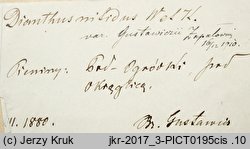 Dianthus nitidus W et K.
var. Gustawiczii Zapałowicz
1910.
Pieniny: Pod Ogródki, pod
Okrąglicą.
1880. Br. Gustawicz
(c) Jerzy Kruk jkr-2017_3-PICT0195cis .10